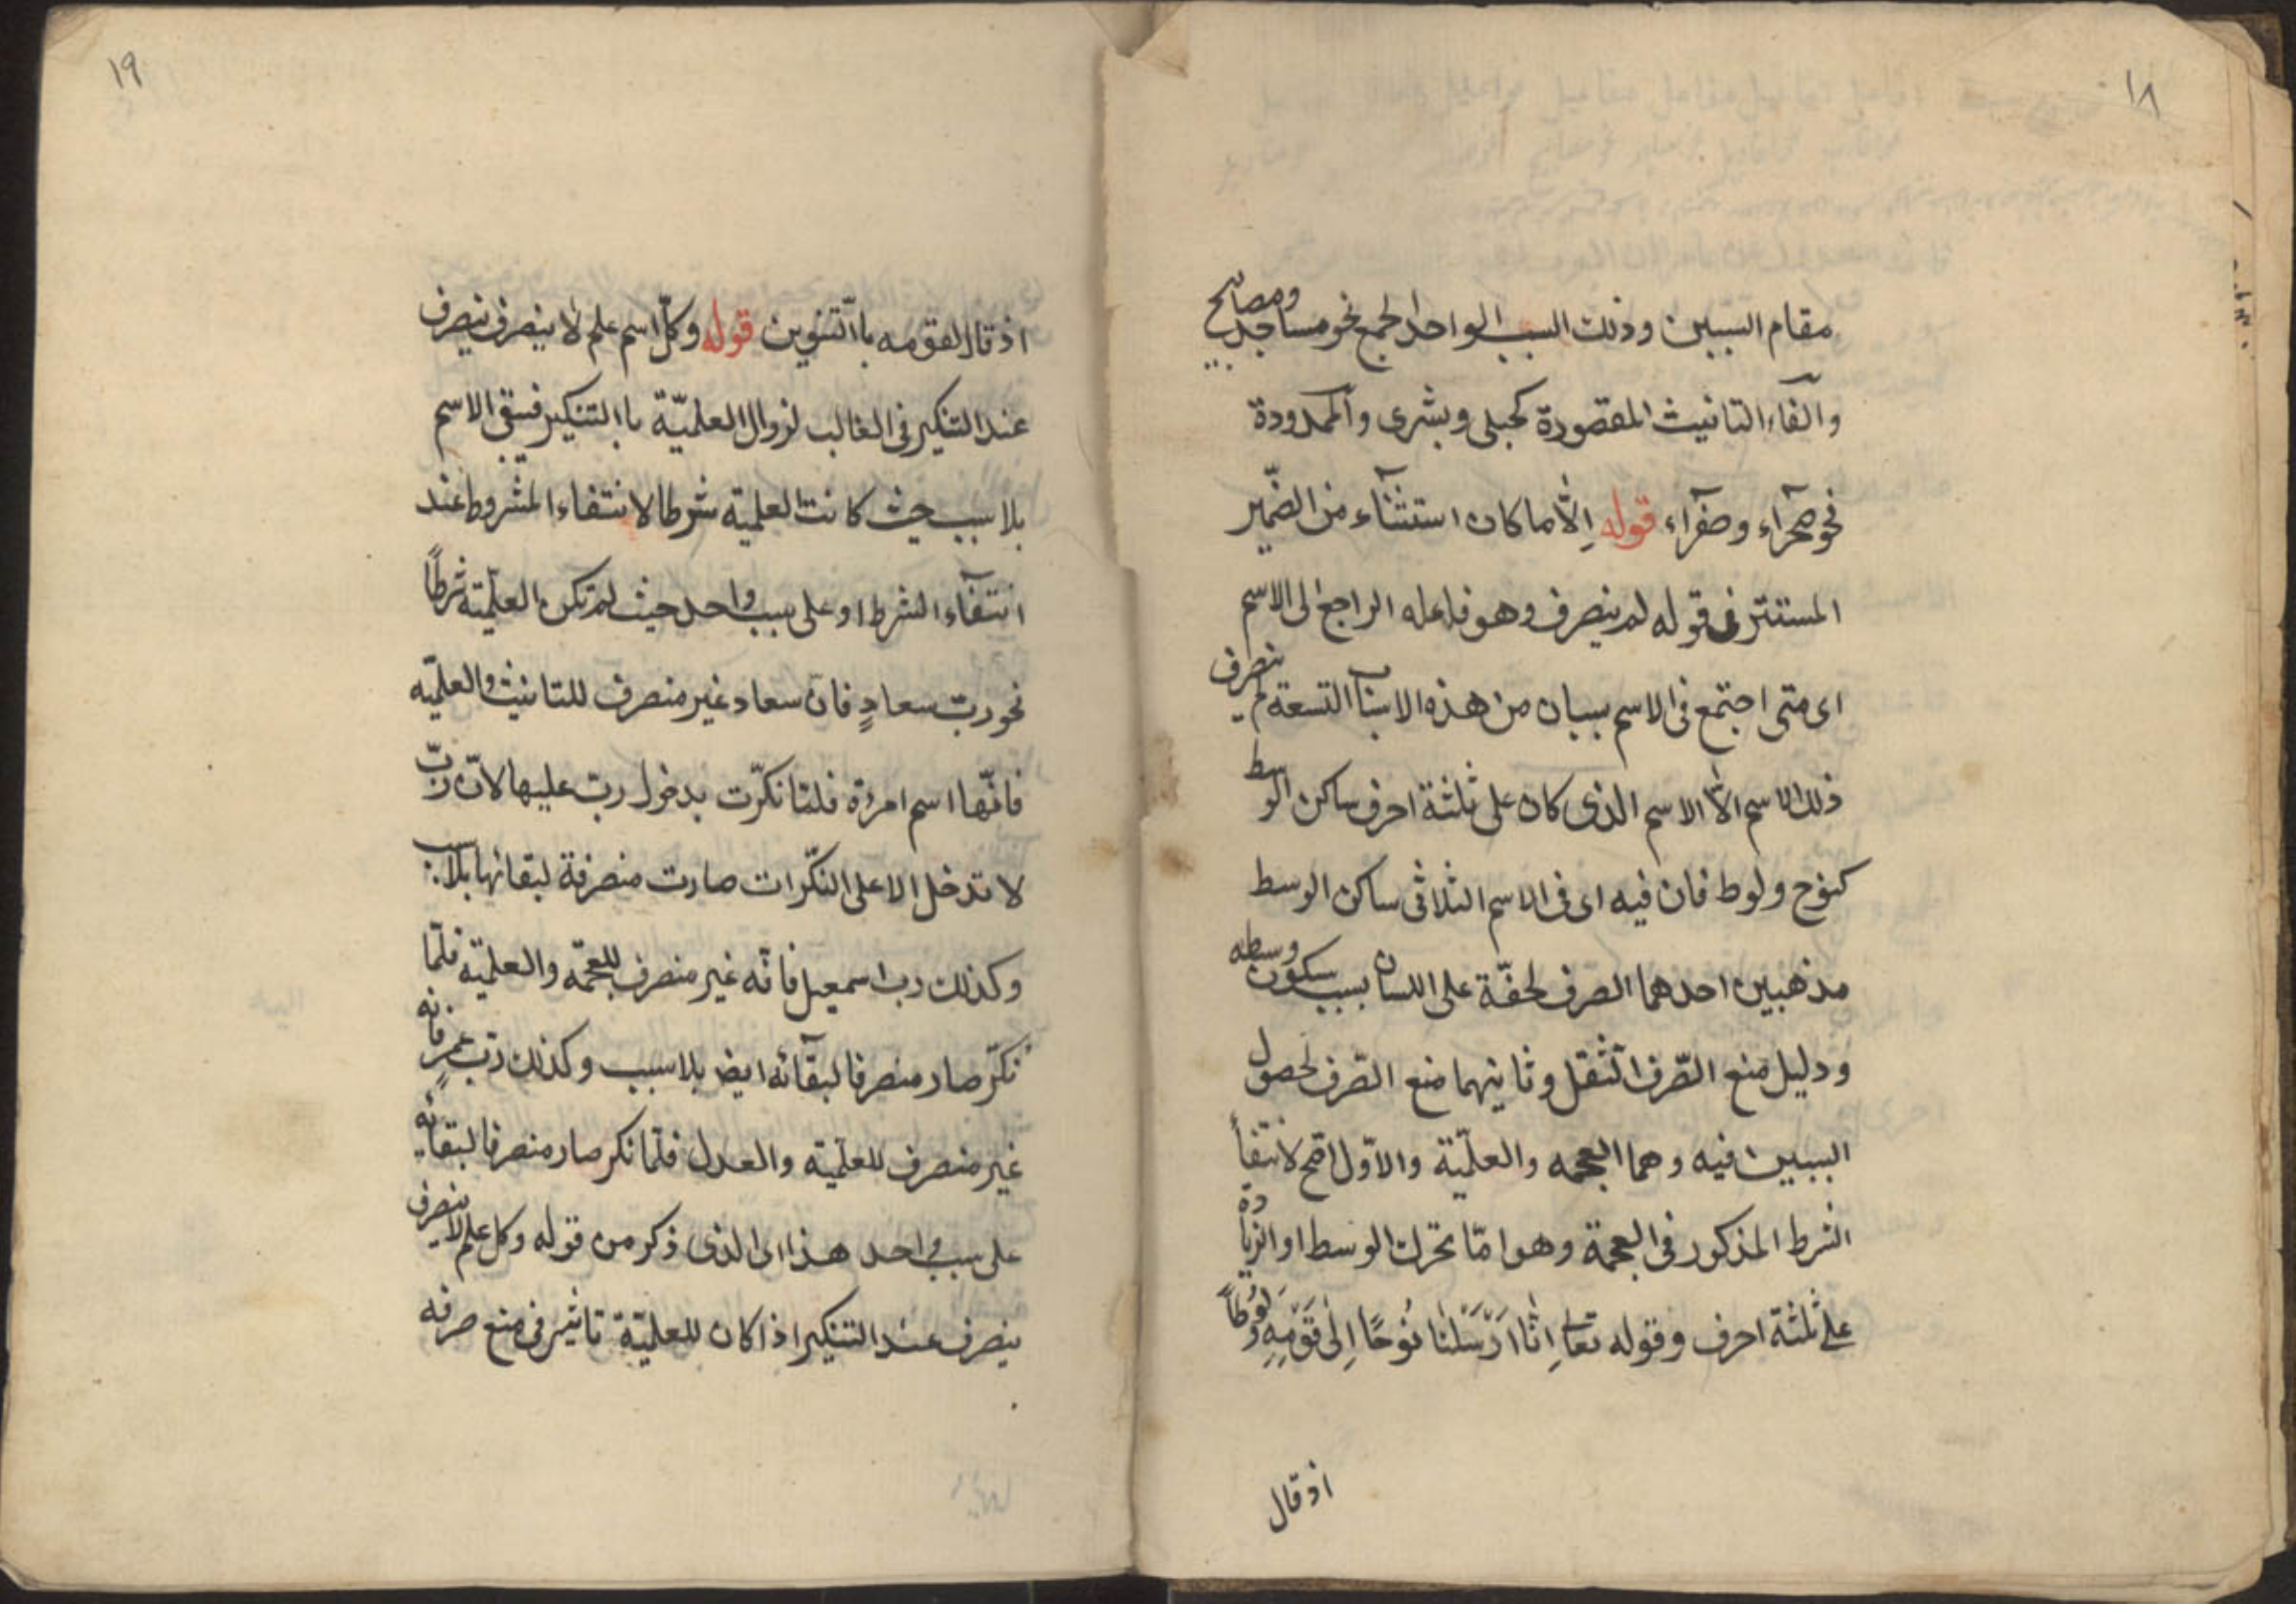 ١٨
مقام السببين وذلك السبب الواحد الجمع نحو مساجد ومصابيح
والفاء التانيث المقصورة كحبلى وبشرى والممدودة
نحو صحرآء وصفرآء قوله إلّا ما كان استثنآء من الضّمير
المستتر فى قوله لم ينصرف وهو فاعله الراجع الى الاسم
اى متى اجتمع فى الاسم سببان من هذه الاسباب التسعة لم ينصرف
ذلك الاسم الّا الاسم الذى كان على ثلثة احرف ساكن الوسط
كنوح ولوط فان فيه اى فى الاسم الثلاثى ساكن الوسط
مذهبين احدهما الصرف لخفّة على اللسان بسبب سكون وسطه
ودليل منع الصّرف الثّقل وثانيهما منع الصّرف لحصول
السببين فيه وهما العجمه والعلميّة والاوّل اصّح لانتفأ
الشرط المذكور فى العجمة وهو امّا تحرك الوسط او الزيادة
على ثلثة احرف وقوله تعا إنّا ارَسَلنٰا نوُحًا اِلٰى قَوْمِهِ وَلوُطاً
اذ قال
١٩
اذ قال لقومه باالتّنوين قوله وكلّ اسم علم لا ينصرف ينصرف
عند التنكير فى الغالب لزوال العلميّة باالتنكير فيبقى الاسم
بلا سبب حيث كانت العلمية شرطا لانتفاء المشروط عند
انتفآء الشرط او على سبب واحد حيث لم تكن العلميّة شرطاً
نحو ربّ سعادٍ فان سعاد غير منصرف للتانيث والعلميّه
فانّها اسم امرءة فلمّا نكرّت بدخول ربّ عليها لانّ ربّ
لا تدخل الا على النكّرات صارت منصرفة لبقائها بلا سبب
وكذلك رب اسمعيل فانّه غير منصرف للعجمّه والعلميّه فلمّا
نكّر صار منصرفا لبقآئه ايض بلا سبب وكذلك ربّ عمرٍ فانه
غير منصرف للعلميّه والعدل فلمّا نكر صار منصرفا لبقائه
على سبب واحد هذا اى الذى ذكر من قوله وكل علم لا ينصرف
ينصرف عند التنكير اذا كان للعلميّة تاثير فى منع صرفه